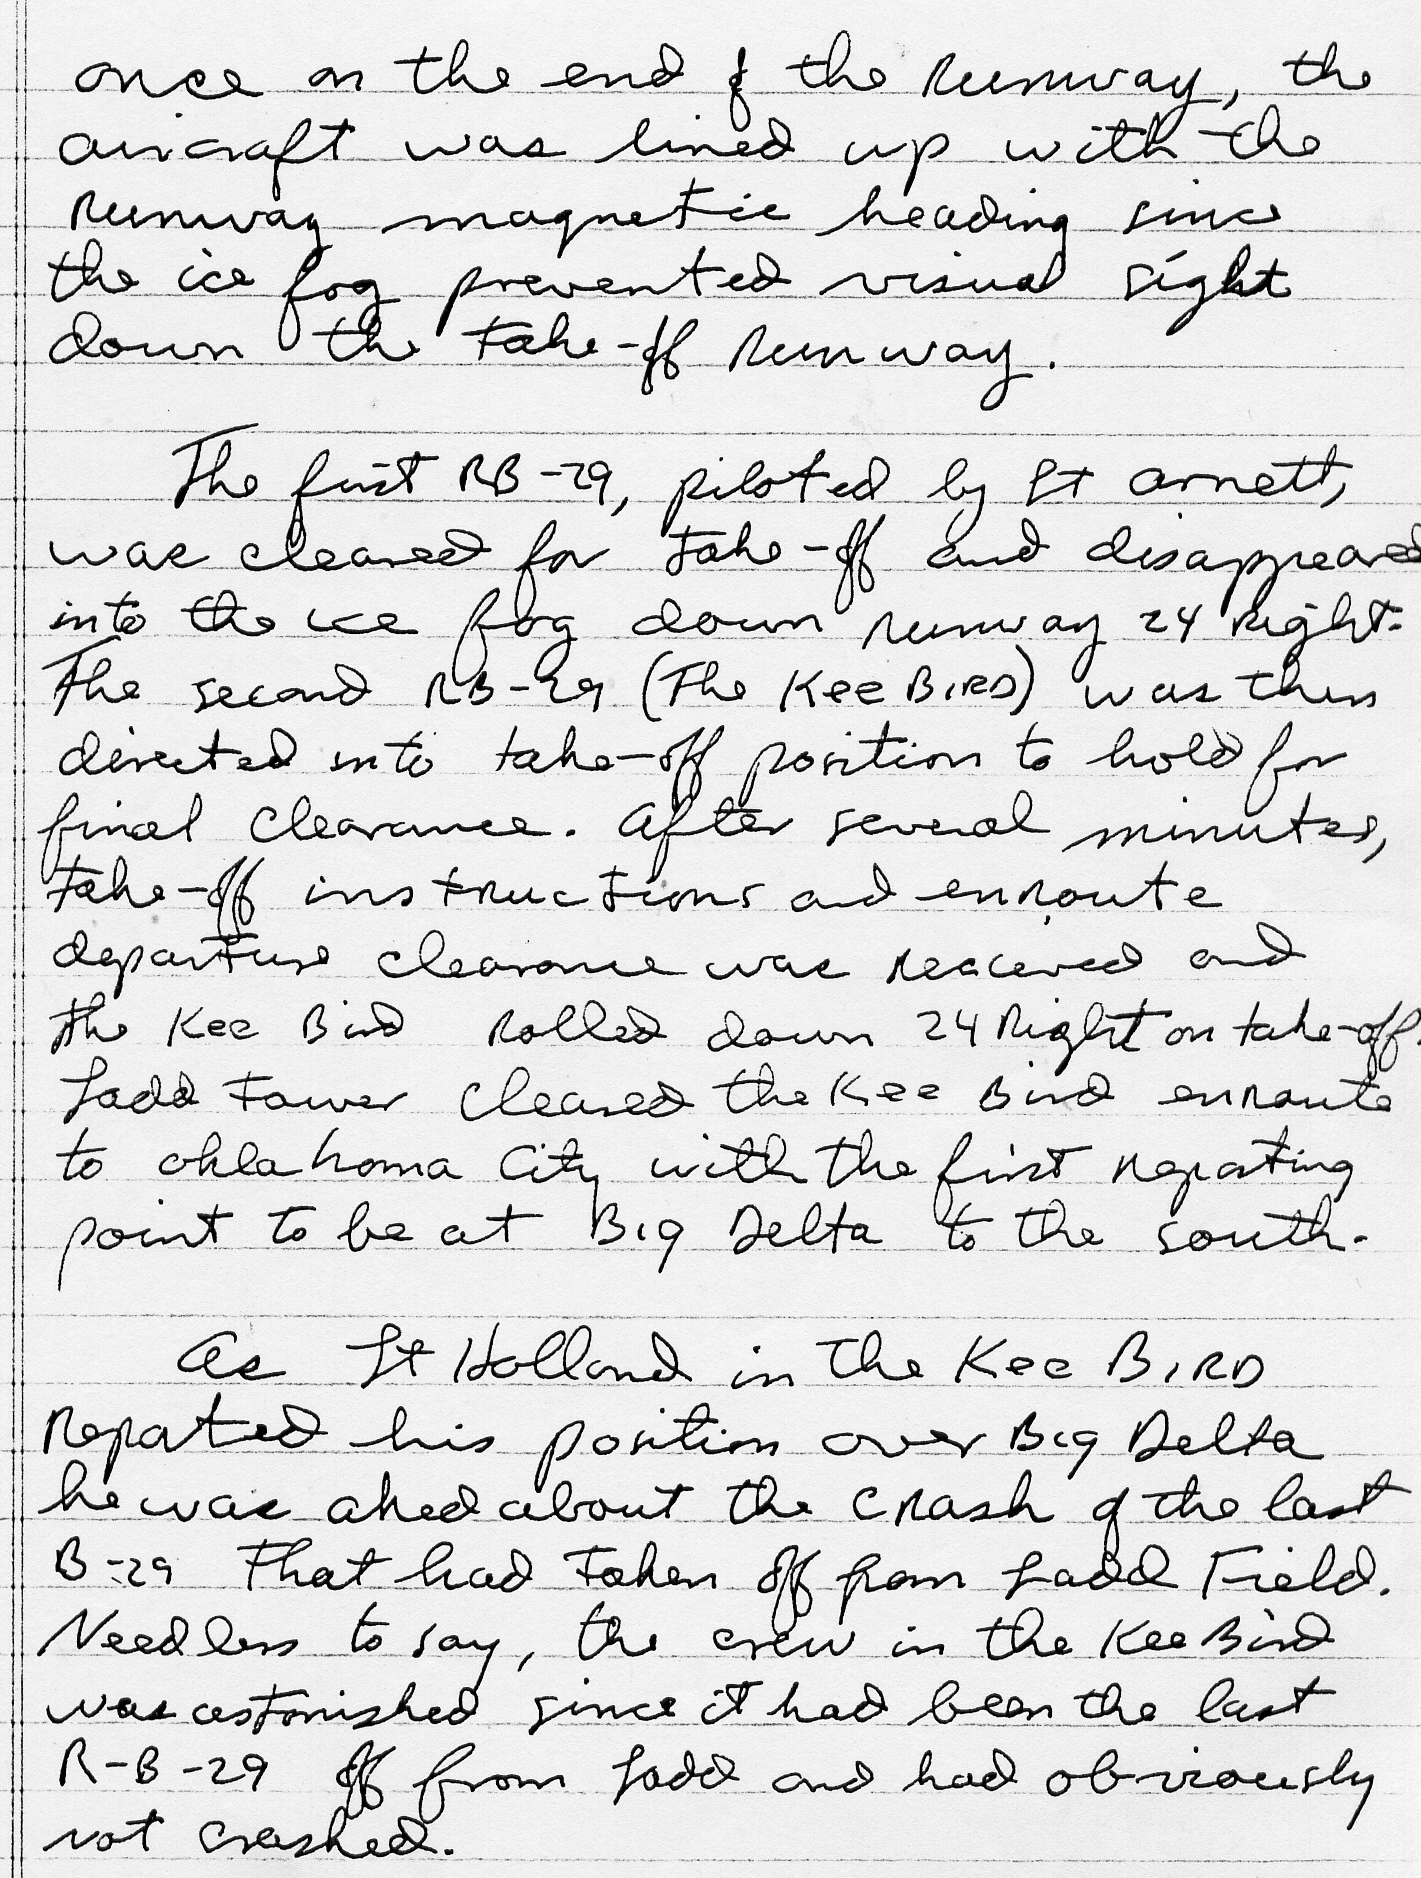 once on the end of the Runway, the
aircraft was lined up with the
Runway magnetic heading since
the ice fog prevented visual sight
down the take-off Runway.
The first RB-29, piloted by Lt Arnett,
was cleared for take-off and disappeared
into the ice fog down runway 24 Right.
The second RB-29 (The Kee BIRD) was then
directed into take-off position to hold for
final clearance. After several minutes,
take-off instructions and enroute
departure clearance was received and
the Kee Bird Rolled down 24 Right on take-off.
Ladd Tower cleared the Kee Bird enroute
to Oklahoma City with the first reporting
point to be at Big Delta to the south.
As Lt Holland in the Kee BIRD
Reported his position over Big Delta
he was aked about the crash of the last
B-29 That had taken off from Ladd Field.
Needless to say, the crew in the Kee Bird
was astonished since it had been the last
R-B-29 off from Ladd and had obviously
not crashed.